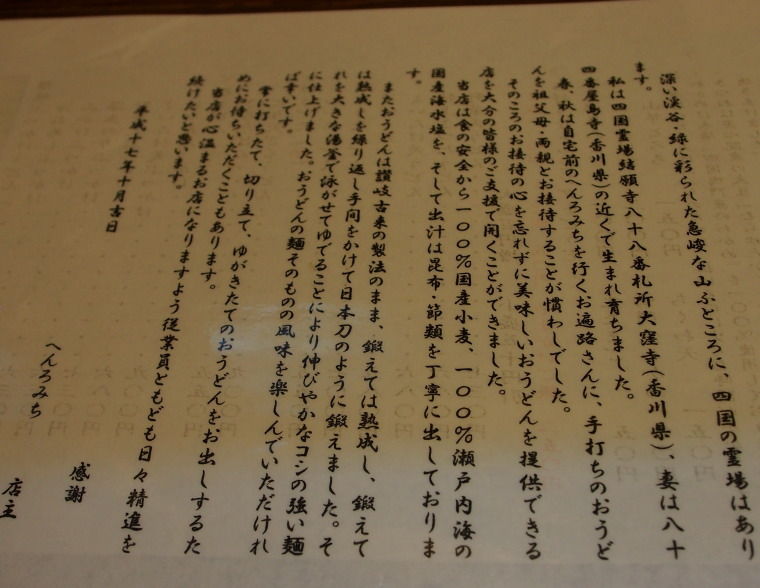 深い渓谷・緑に彩られた急峻な山ふところに、四国の霊場はあり
ます。
私は四国霊場結願寺八十八番札所大窪寺(香川県)、妻は八十
四番屋島寺(香川県)の近くで生まれ育ちました。
春、秋は自宅前のへんろみちを行くお遍路さんに、手打ちのおうど
んを祖父母・両親とお接待することが慣わしでした。
そのころのお接待の心を忘れずに美味しいおうどんを提供できる
店を大分の皆様のご支援で開くことができました。
当店は食の安全から一〇〇%国産小麦、一〇〇%瀬戸内海の
国産海水塩を、そして出汁は昆布・節類を丁寧に出しておりま
す。
またおうどんは讃岐古来の製法のまま、鍛えては熟成し、鍛えて
は熟成しを繰り返し手間をかけて日本刀のように鍛えました。そ
れを大きな湯釜で泳がせてゆでることにより伸びやかなコシの強い麺
に仕上げました。おうどんの麺そのものの風味を楽しんでいただけれ
ば幸いです。
常に打ちたて、切り立て、ゆがきたてのおうどんをお出しするた
めにお待ちいただくこともあります。
当店が心温まるお店になりますよう従業員どもども日々精進を
続けたいと思います。
平成十七年十月吉日
へんろみち
感謝
店主